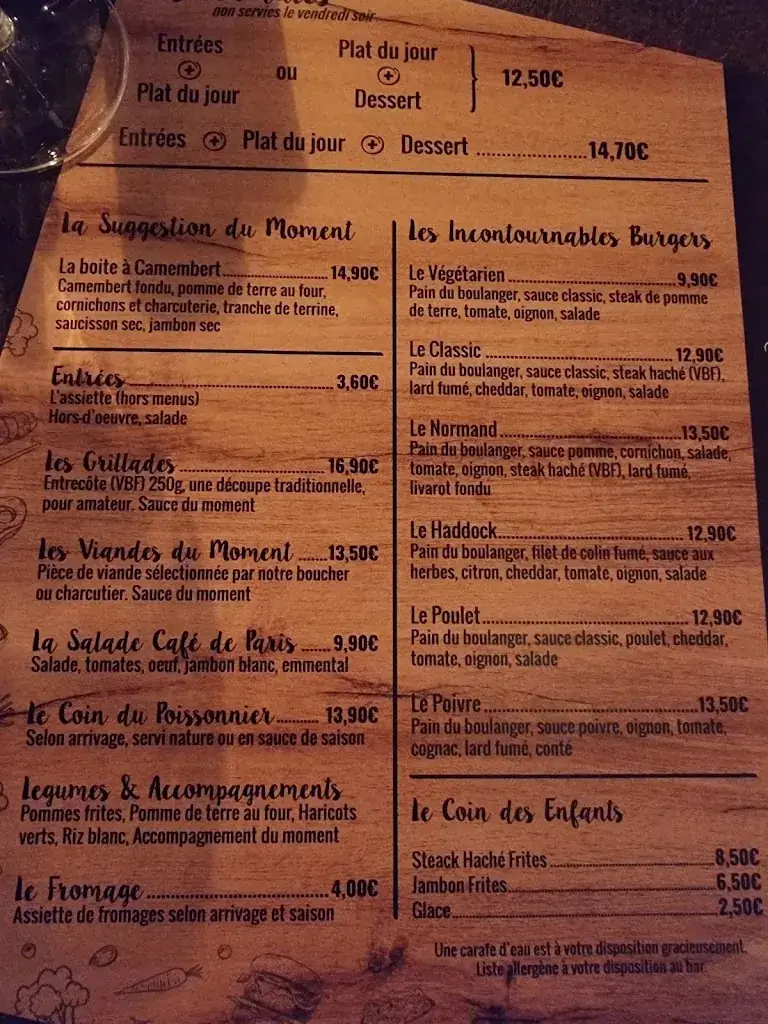 non servies le vendredi soir
Entrées
+
Plat du jour
ou
Plat du jour
+
Dessert
12,50€
Entrées + Plat du jour + Dessert ........................14,70€
La Suggestion du Moment
La boite à Camembert........................ 14,90€
Camembert fondu, pomme de terre au four,
cornichons et charcuterie, tranche de terrine,
saucisson sec, jambon sec
Entrées........................ 3,60€
L'assiette (hors menus)
Hors-d'oeuvre, salade
Les Grillades........................ 16,90€
Entrecôte (VBF) 250g, une découpe traditionnelle,
pour amateur. Sauce du moment
Les Viandes du Moment .......13,50€
Pièce de viande sélectionnée par notre boucher
ou charcutier. Sauce du moment
La Salade Café de Paris .......9,90€
Salade, tomates, oeuf, jambon blanc, emmental
Le Coin du Poissonnier.......... 13,90€
Selon arrivage, servi nature ou en sauce de saison
Legumes & Accompagnements
Pommes frites, Pomme de terre au four, Haricots
verts, Riz blanc, Accompagnement du moment
Le Fromage........................4,00€
Assiette de fromages selon arrivage et saison
Les Incontournables Burgers
Le Végétarien........................9,90€
Pain du boulanger, sauce classic, steak de pomme
de terre, tomate, oignon, salade
Le Classic........................ 12,90€
Pain du boulanger, sauce classic, steak haché (VBF),
lard fumé, cheddar, tomate, oignon, salade
Le Normand........................13,50€
Pain du boulanger, sauce pomme, cornichon, salade,
tomate, oignon, steak haché (VBF), lard fumé,
livarot fondu
Le Haddock........................ 12,90€
Pain du boulanger, filet de colin fumé, sauce aux
herbes, citron, cheddar, tomate, oignon, salade
Le Poulet........................ 12,90€
Pain du boulanger, sauce classic, poulet, cheddar,
tomate, oignon, salade
Le Poivre........................13,50€
Pain du boulanger, souce poivre, oignon, tomate,
cognac, lard fumé, conté
Le Coin des Enfants
Steack Haché Frites........................8,50€
Jambon Frites........................6,50€
Glace........................2,50€
Une carafe d'eau est à votre disposition gracieusement.
Liste allergène à votre disposition au bar.